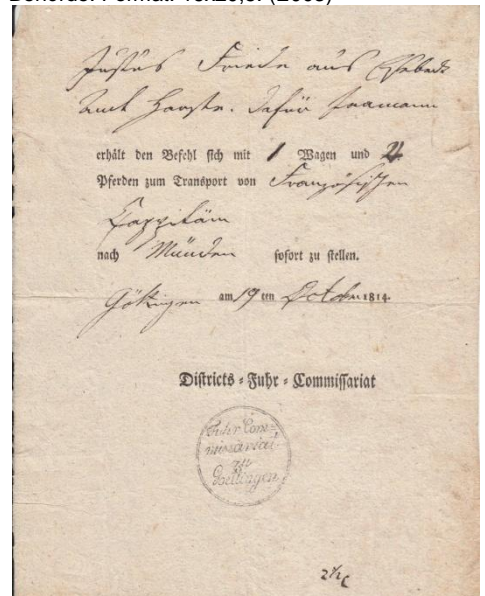 Justus Friede aus
Amt Harste. Dafür
erhält den Befehl sich mit 1 Wagen und 4
Pferden zum Transport von Französischen
nach Münden sofort zu stellen.
Göttingen am 19 ten October 1814.
Districts=Fuhr=Commissariat
Fuhr Com=
missariat
zu
Goettingen